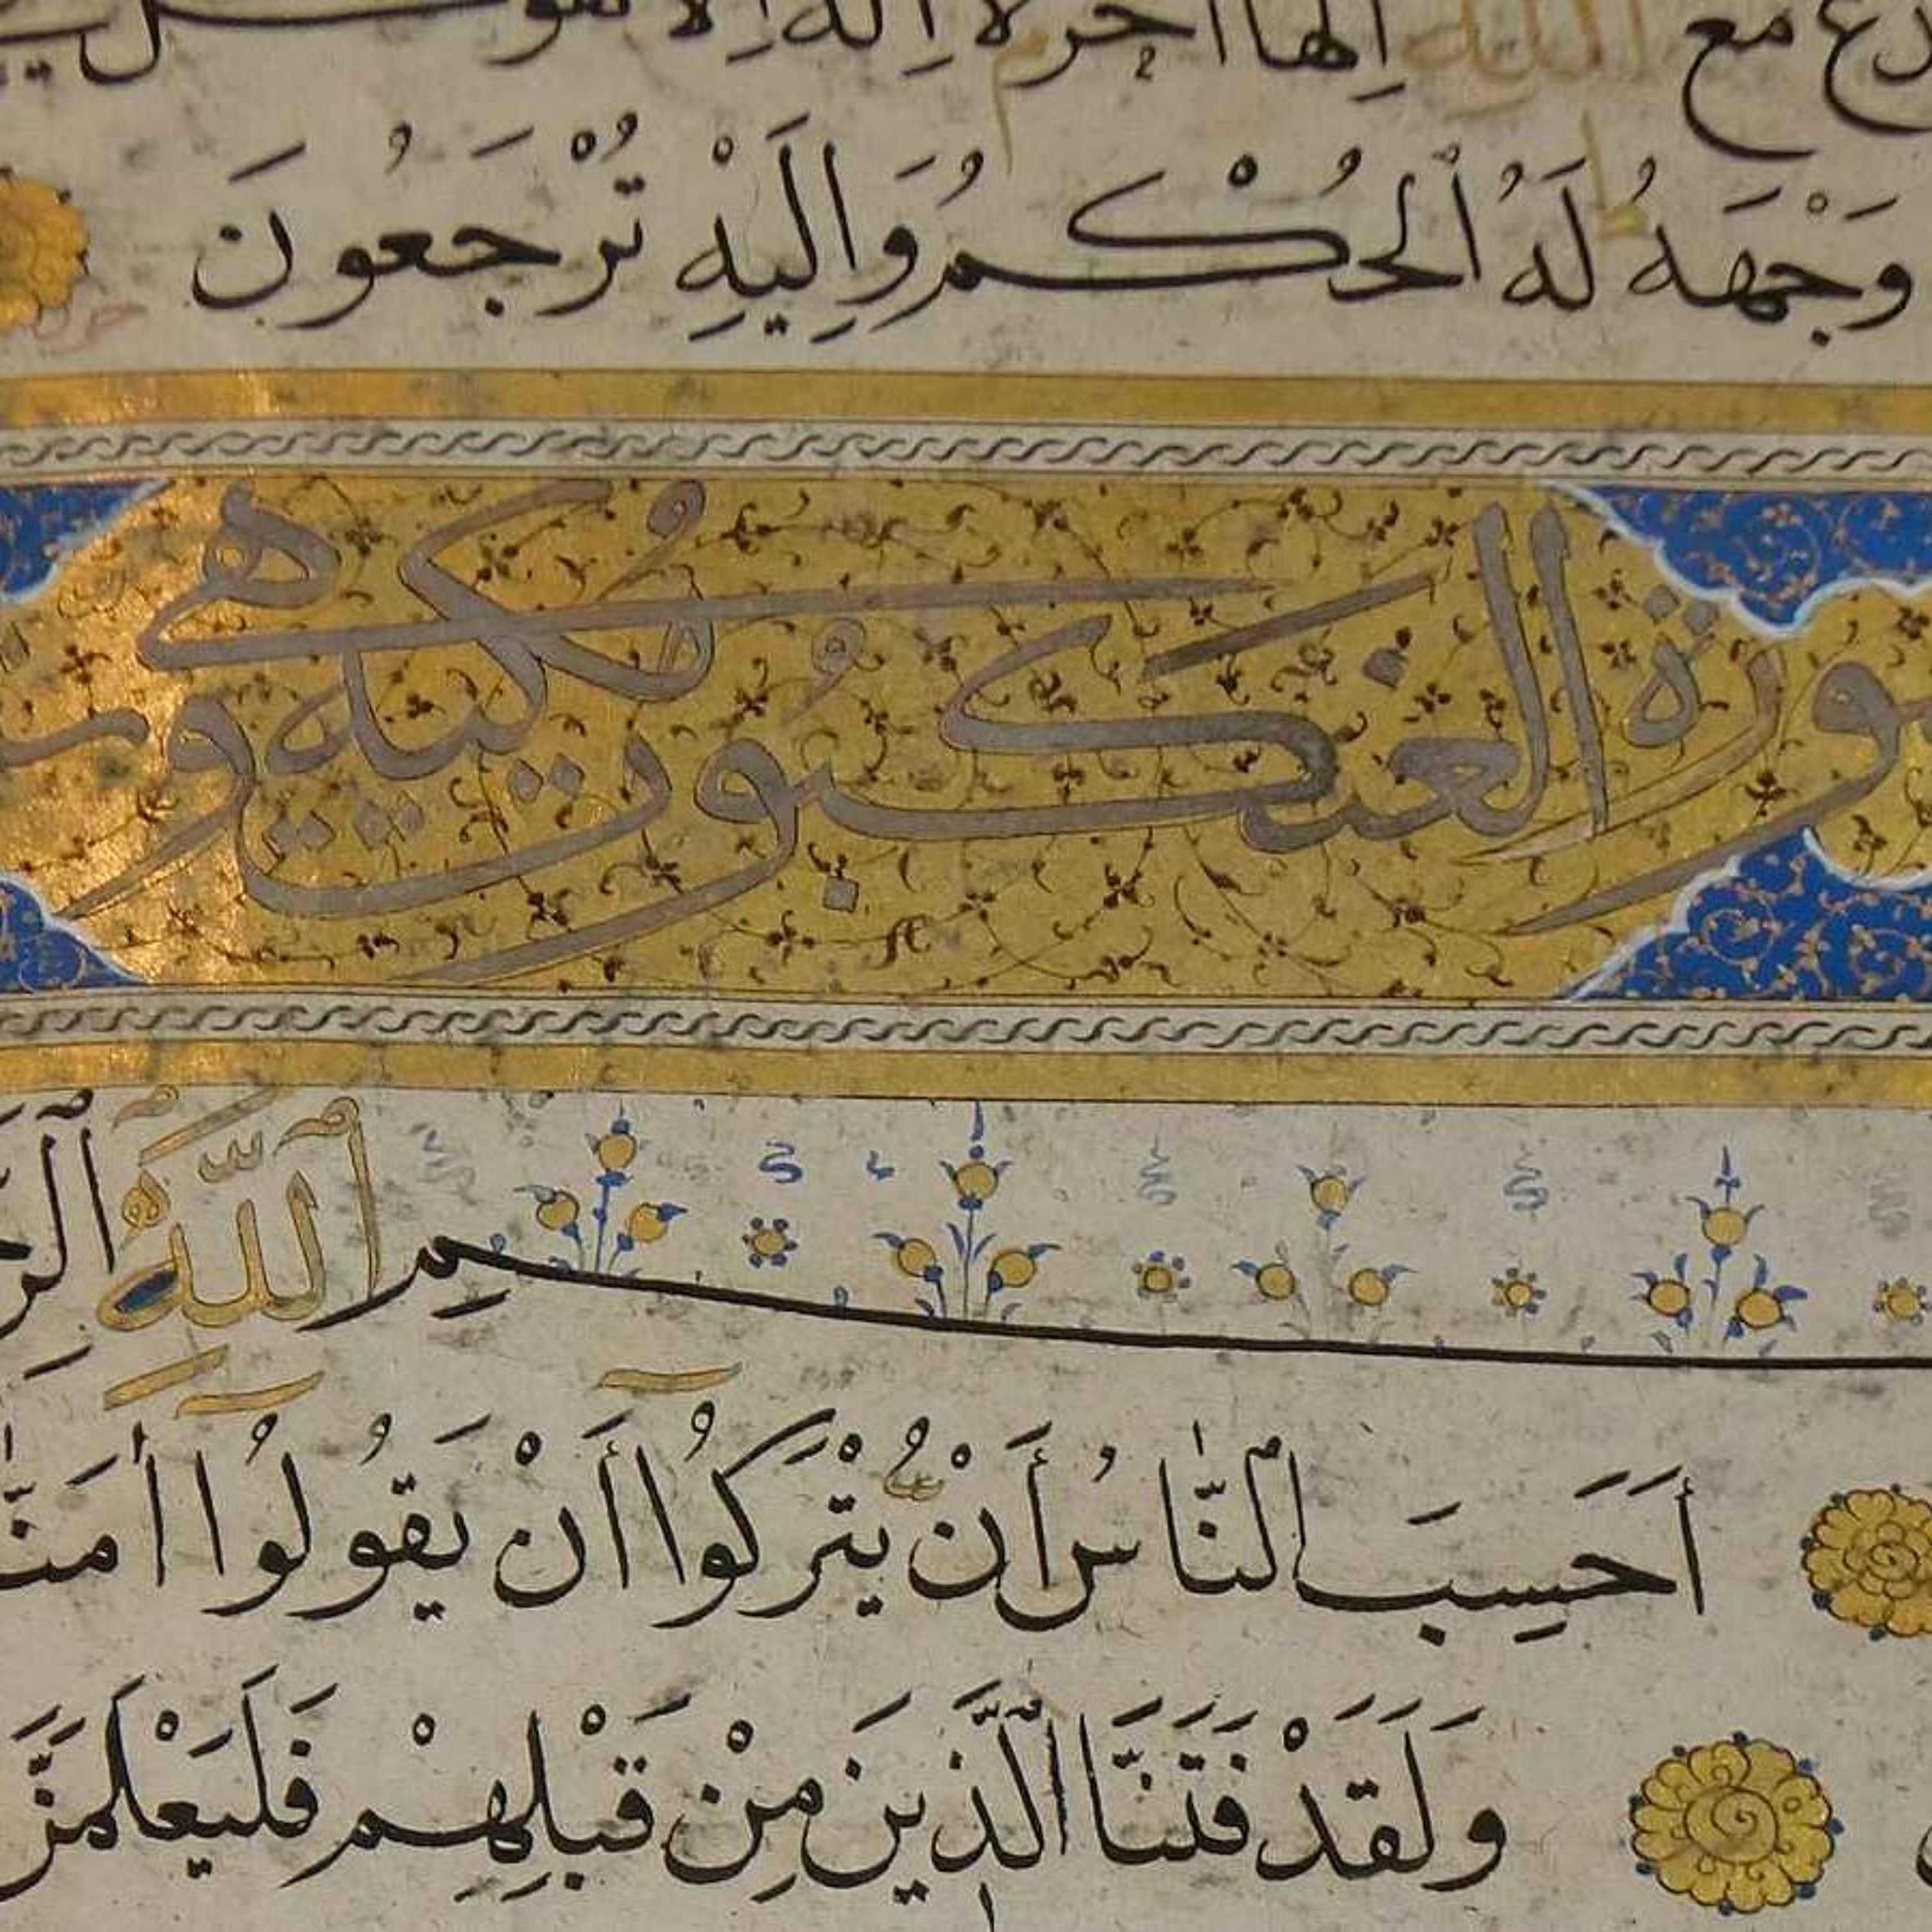 تدع مع الله إلها آخر لا إله إلا هو كل
وَجْهَهُ لَهُ ٱلْحُكْمُ وَإِلَيْهِ تُرْجَعُونَ
سورة العنكبوت مكية وهي
بِسْمِ ٱللَّهِ
أَحَسِبَ ٱلنَّاسُ أَنْ يُتْرَكُوا أَنْ يَقُولُوا أٰمَنَّا
وَلَقَدْ فَتَنَّا ٱلَّذِينَ مِنْ قَبْلِهِمْ فَلَيَعْلَمَنَّ